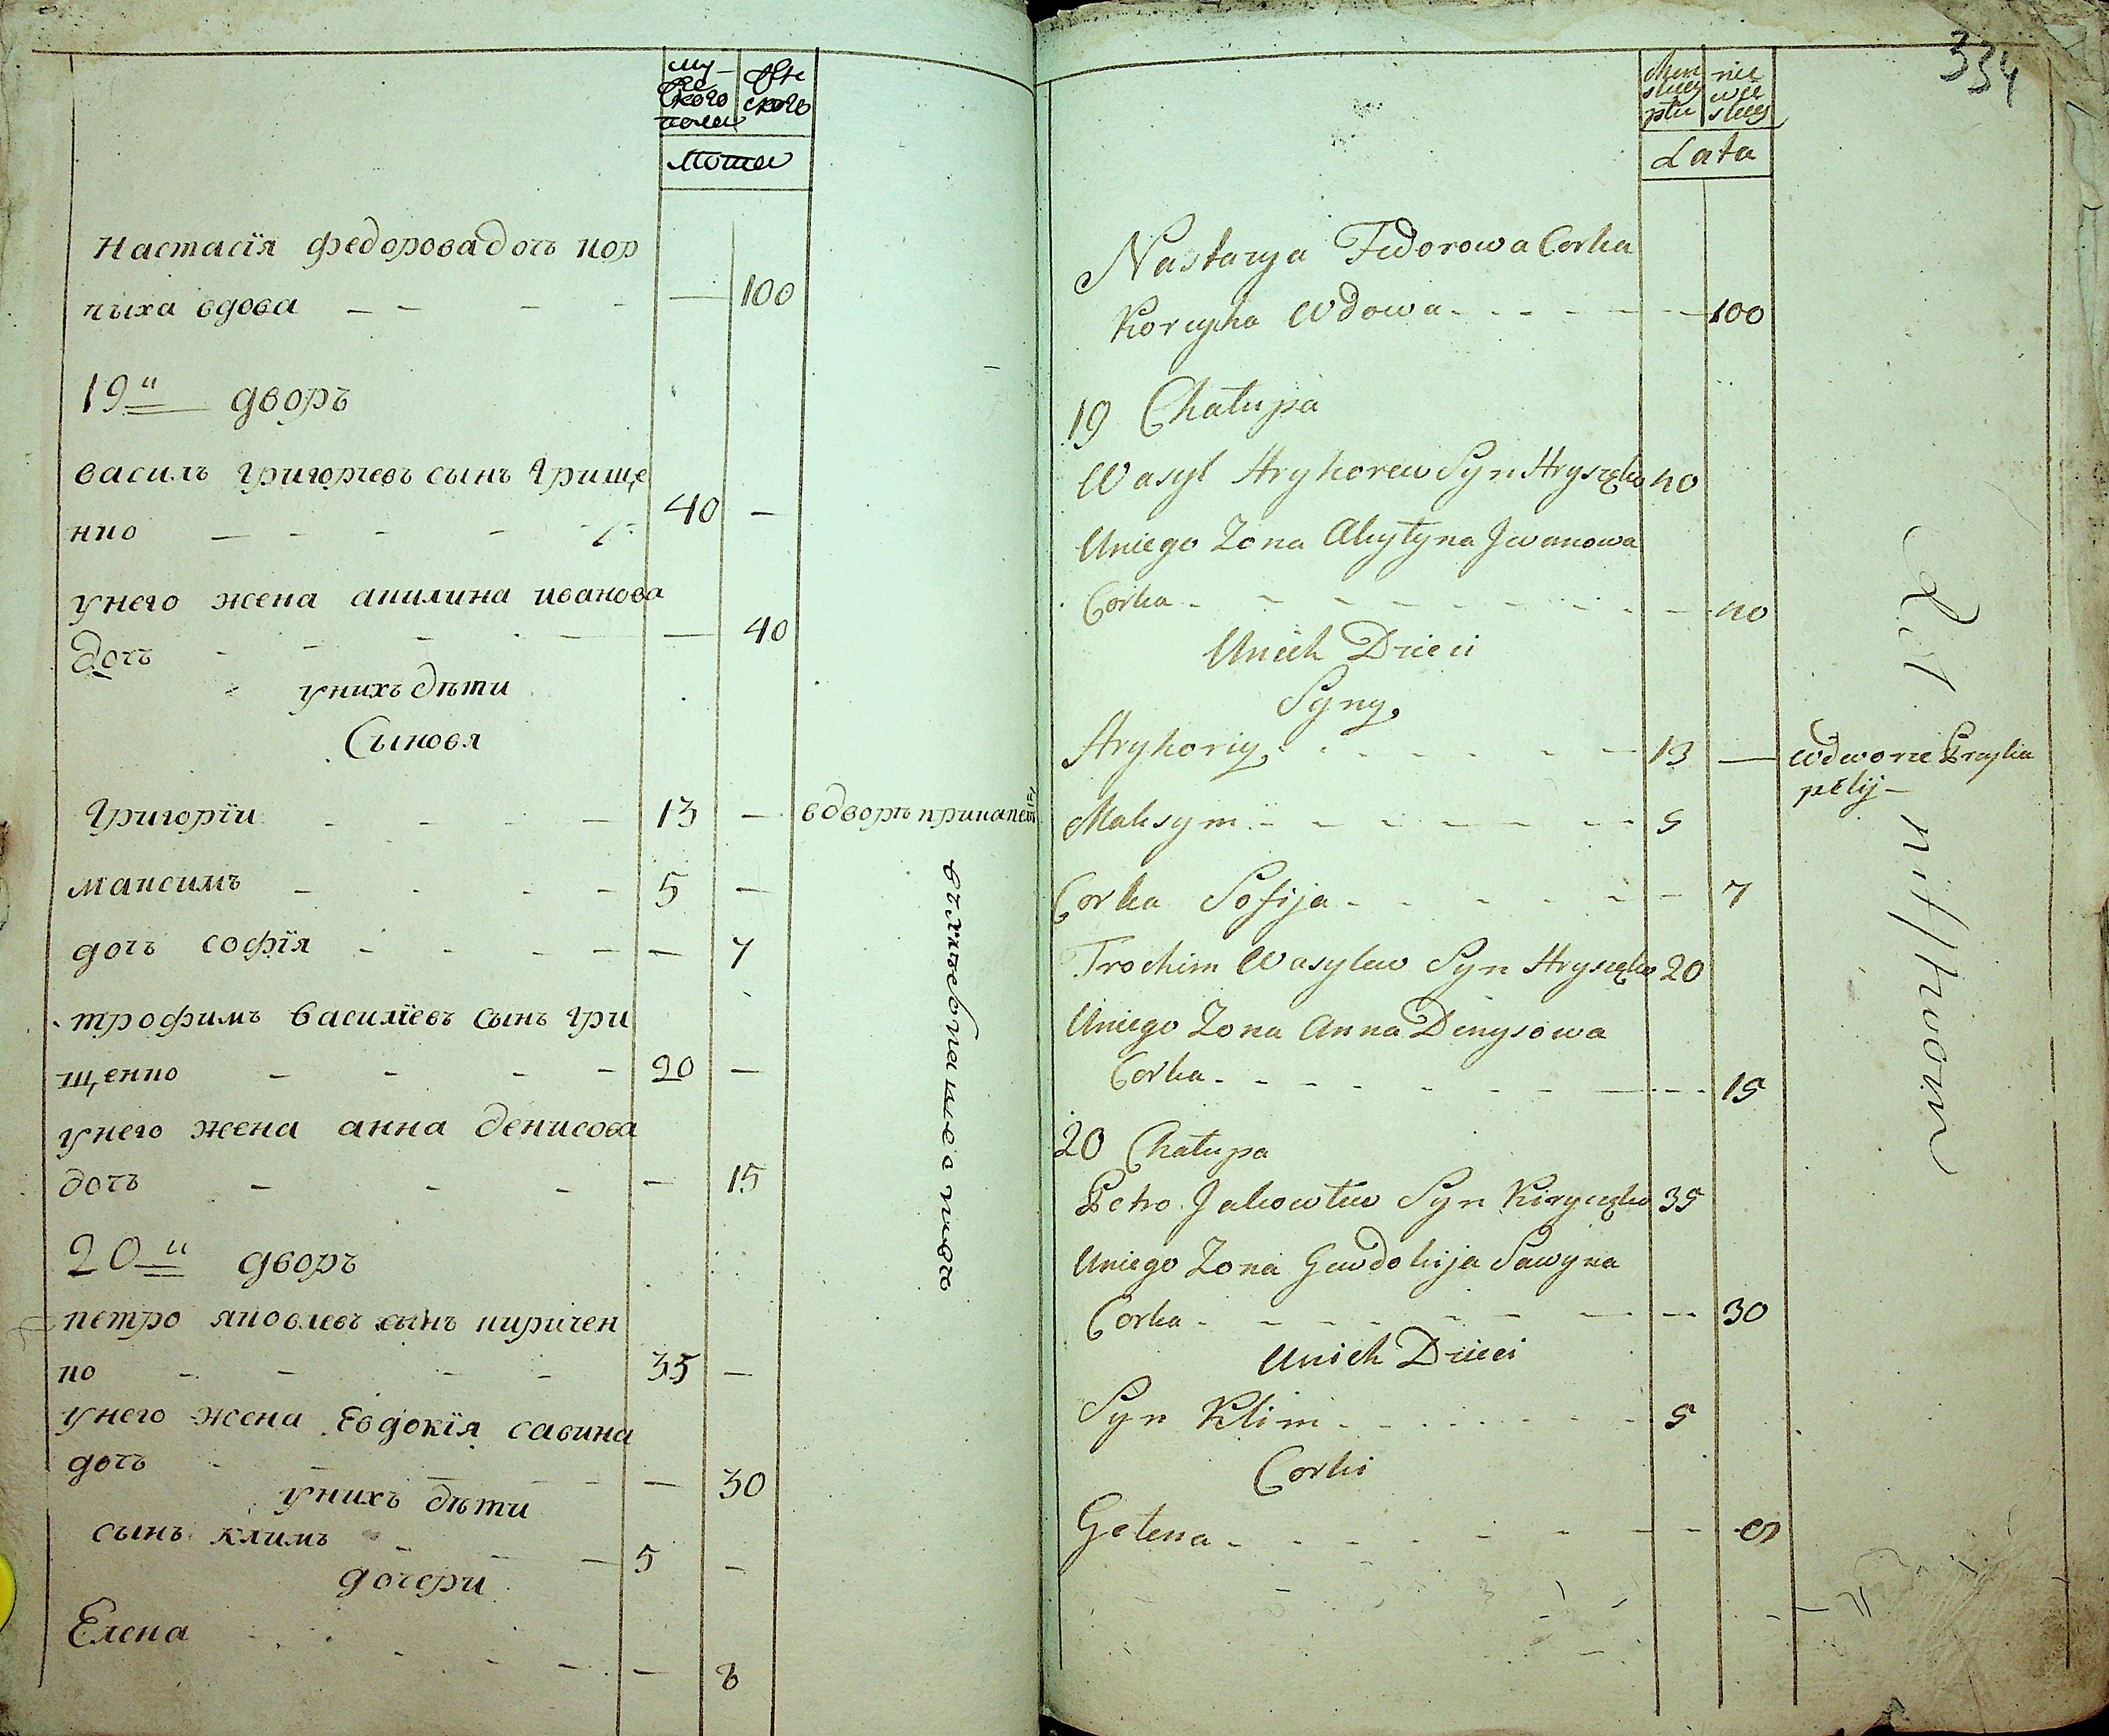 му
же
ского
полу
же
ского
Лѣта
Настасїя федорова дочь кор
чыха вдова — — — — — 100
19й дворъ
василь григорьевъ сынъ грище
нко — — — — 40 —
унего жена акилина иванова
дочь — — — — 40
унихъ дѣти
Сыновя
Григорїи — — — 13 — вдворѣ при капел
максимъ — — — 5 —
дочь софїя — — — — 7
трофимъ василїевъ сынъ гри
щенко — — — — 20 —
унего жена анна денисова
дочь — — — — 15
20й дворъ
петро яковлевъ сынъ киричен
ко — — — — 35 —
унего жена Евдокїя савина
дочь — — — — 30
унихъ дѣти
сынъ климъ — — — 5 —
дочери
Елена — — — — 8
334
męz
skiey
płci
nie
wie
skiey
Lata
Nastazya Fedorowa Corka
Korczycha Wdowa - - - - - 100
19 Chałupa
Wasyl Hryhorew Syn Hryszczęko 40
Uniego Zona Akyłyna Jwanowa
Corka - - - - - - - 40
Unich Dzieci
Syny
Hryhoriy - - - - - 13 — wdworze Przy ka
peliy -
Maksym - - - - - - 5
Corka Sofija - - - - - - 7
Trochim Wasylew Syn Hryszczęko 20
Uniego Zona Anna Denysowa
Corka - - - - - - - 15
20 Chałupa
Petro Jakowlew Syn Kiryczęko 35
Uniego Zona Gewdokija Sawyna
Corka - - - - - - - 30
Unich Dzieci
Syn Klim - - - - - - 5
Corki
Gelena - - - - - - - 8